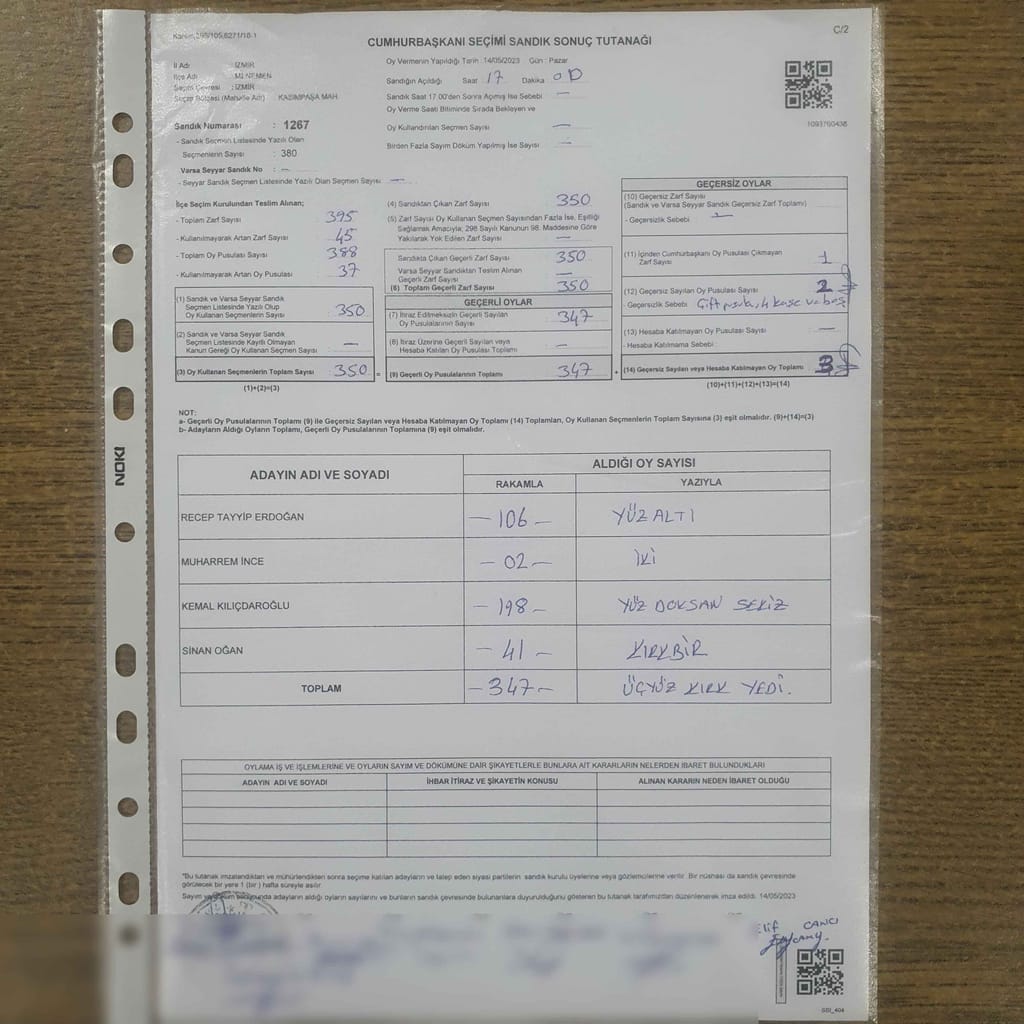 C/2
CUMHURBAŞKANI SEÇİMİ SANDIK SONUÇ TUTANAĞI
İl Adı : İZMİR
İlçe Adı : MENEMEN
Seçim Çevresi : İZMİR
Seçim Bölgesi (Mahalle Adı) KASIMPAŞA MAH.
Oy Vermenin Yapıldığı Tarih : 14/05/2023 Gün : Pazar
Sandığın Açıldığı Saat 17 Dakika 00
Sandık Saat 17.00'den Sonra Açılmış İse Sebebi —
Oy Verme Saati Bitiminde Sırada Bekleyen ve
Oy Kullandırılan Seçmen Sayısı —
Birden Fazla Sayım Döküm Yapılmış İse Sayısı —
1093760438
Sandık Numarası : 1267
- Sandık Seçmen Listesinde Yazılı Olan
Seçmenlerin Sayısı : 380
Varsa Seyyar Sandık No : —
- Seyyar Sandık Seçmen Listesinde Yazılı Olan Seçmen Sayısı —
İlçe Seçim Kurulundan Teslim Alınan;
- Toplam Zarf Sayısı 395
- Kullanılmayarak Artan Zarf Sayısı 45
- Toplam Oy Pusulası Sayısı 388
- Kullanılmayarak Artan Oy Pusulası 37
(1) Sandık ve Varsa Seyyar Sandık
Seçmen Listesinde Yazılı Olup
Oy Kullanan Seçmenlerin Sayısı 350
(2) Sandık ve Varsa Seyyar Sandık
Seçmen Listesinde Kayıtlı Olmayan
Kanun Gereği Oy Kullanan Seçmen Sayısı —
(3) Oy Kullanan Seçmenlerin Toplam Sayısı 350 =
(1)+(2)=(3)
(4) Sandıktan Çıkan Zarf Sayısı 350
(5) Zarf Sayısı Oy Kullanan Seçmen Sayısından Fazla İse, Eşitliği
Sağlamak Amacıyla; 298 Sayılı Kanunun 98. Maddesine Göre
Yakılarak Yok Edilen Zarf Sayısı —
Sandıkta Çıkan Geçerli Zarf Sayısı 350
Varsa Seyyar Sandıktan Teslim Alınan
Geçerli Zarf Sayısı —
(6) Toplam Geçerli Zarf Sayısı 350
GEÇERLİ OYLAR
(7) İtiraz Edilmeksizin Geçerli Sayılan
Oy Pusulalarının Sayısı 347
(8) İtiraz Üzerine Geçerli Sayılan veya
Hesaba Katılan Oy Pusulası Toplamı —
(9) Geçerli Oy Pusulalarının Toplamı 347 +
GEÇERSİZ OYLAR
(10) Geçersiz Zarf Sayısı
(Sandık ve Varsa Seyyar Sandık Geçersiz Zarf Toplamı)
- Geçersizlik Sebebi : —
(11) İçinden Cumhurbaşkanı Oy Pusulası Çıkmayan
Zarf Sayısı 1
(12) Geçersiz Sayılan Oy Pusulası Sayısı 2
- Geçersizlik Sebebi : Çift pusula,
(13) Hesaba Katılmayan Oy Pusulası Sayısı —
- Hesaba Katılmama Sebebi :
(14) Geçersiz Sayılan veya Hesaba Katılmayan Oy Toplamı 3
(10)+(11)+(12)+(13)=(14)
NOT:
a- Geçerli Oy Pusulalarının Toplamı (9) ile Geçersiz Sayılan veya Hesaba Katılmayan Oy Toplamı (14) Toplamları, Oy Kullanan Seçmenlerin Toplam Sayısına (3) eşit olmalıdır. (9)+(14)=(3)
b- Adayların Aldığı Oyların Toplamı, Geçerli Oy Pusulalarının Toplamına (9) eşit olmalıdır.
NOKI
ADAYIN ADI VE SOYADI ALDIĞI OY SAYISI
RAKAMLA YAZIYLA
RECEP TAYYİP ERDOĞAN — 106 — YÜZ ALTI
MUHARREM İNCE — 02 — İKİ
KEMAL KILIÇDAROĞLU — 198 — YÜZ DOKSAN SEKİZ
SİNAN OĞAN — 41 — KIRKBİR
TOPLAM — 347 — ÜÇYÜZ KIRK YEDİ.
OYLAMA İŞ VE İŞLEMLERİNE VE OYLARIN SAYIM VE DÖKÜMÜNE DAİR ŞİKAYETLERLE BUNLARA AİT KARARLARIN NELERDEN İBARET BULUNDUKLARI
ADAYIN ADI VE SOYADI İHBAR İTİRAZ VE ŞİKAYETİN KONUSU ALINAN KARARIN NEDEN İBARET OLDUĞU
"Bu tutanak imzalandıktan ve mühürlendikten sonra seçime katılan adayların ve talep eden siyasi partilerin sandık kurulu üyelerine veya gözlemcilerine verilir. Bir nüshası da sandık çevresinde
görülecek bir yere 1 (bir) hafta süreyle asılır.
adayların aldığı oyların sayılarını ve bunların sandık çevresinde bulunanlara duyurulduğunu gösteren bu tutanak tarafımızdan düzenlenerek imza edildi. 14/05/2023
Elif CANCI
SSI_404